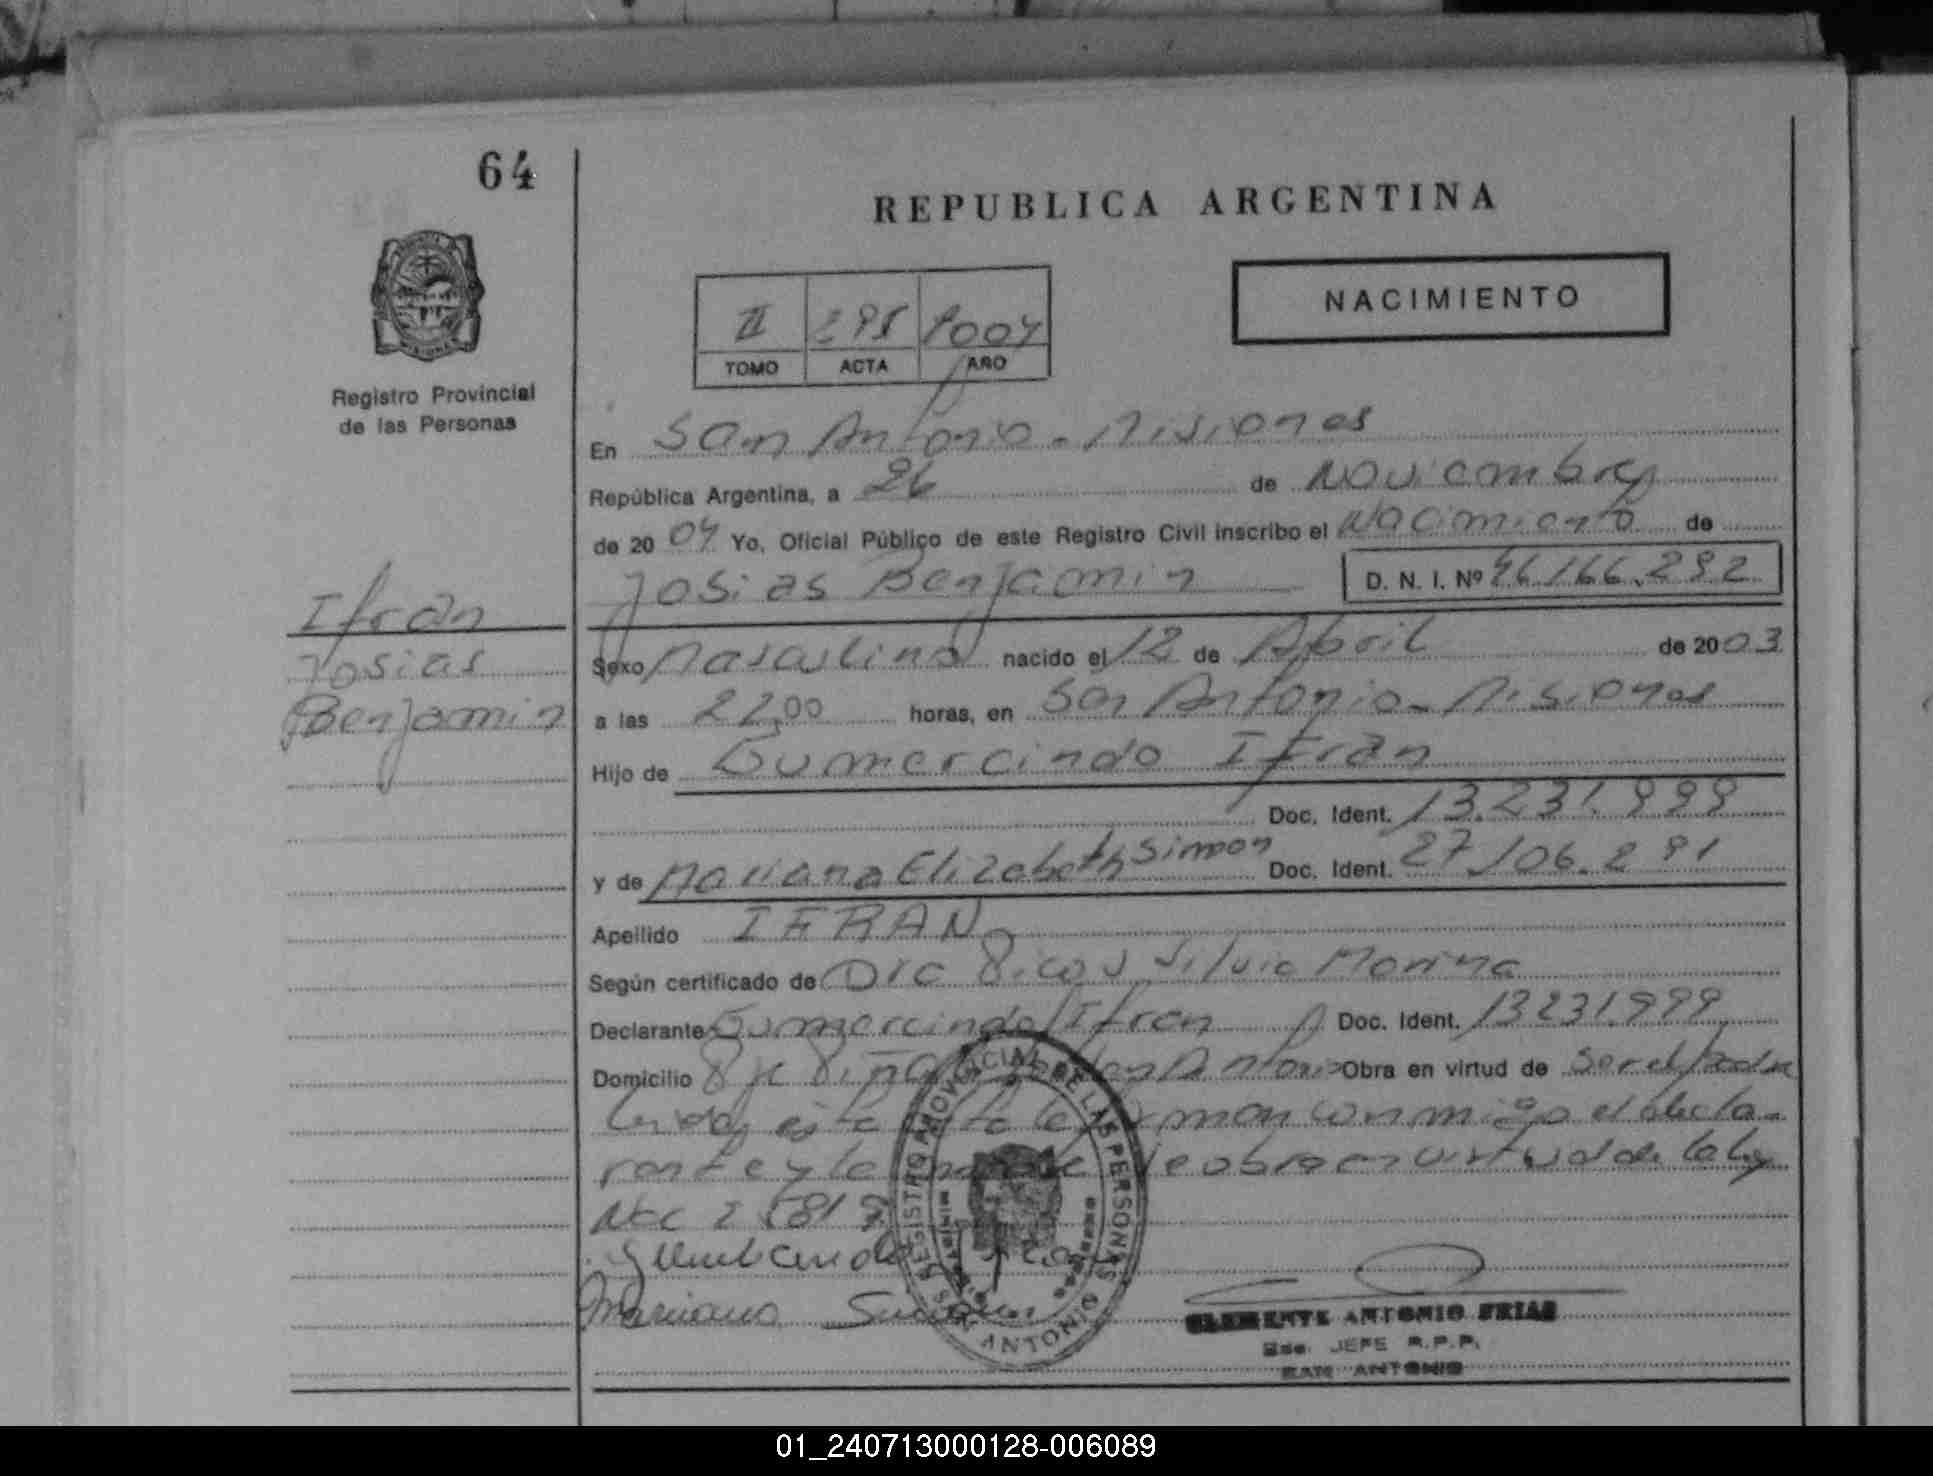 64
REPUBLICA ARGENTINA
NACIMIENTO
II
TOMO ACTA AÑO
Registro Provincial
de las Personas
En San Antonio - Misiones
República Argentina, a 26 de Noviembre
de 2004 Yo, Oficial Público de este Registro Civil inscribo el Nacimiento de
Josias Benjamin D. N. I. Nº
Ifran
Josias
Benjamin
Sexo Masculino nacido el 12 de Abril de 2003
a las horas, en San Antonio - Misiones
Hijo de Gumercindo Ifran
Doc. Ident. 13.231.999
y de Mariana Elizabeth Simon Doc. Ident. 27.106.291
Apellido IFRAN
Según certificado de Dra Silvia Marina
Declarante Gumercindo Ifran Doc. Ident. 13231.999
Domicilio San Antonio Obra en virtud de ser el Padre
Leida esta acta la firman conmigo el decla-
rante y la madre se obra en virtud de la ley
Nac
Mariana Simon
REGISTRO PROVINCIAL DE LAS PERSONAS
SAN ANTONIO
CLEMENTE ANTONIO FRIAS
JEFE R.P.P.
SAN ANTONIO
01_240713000128-006089